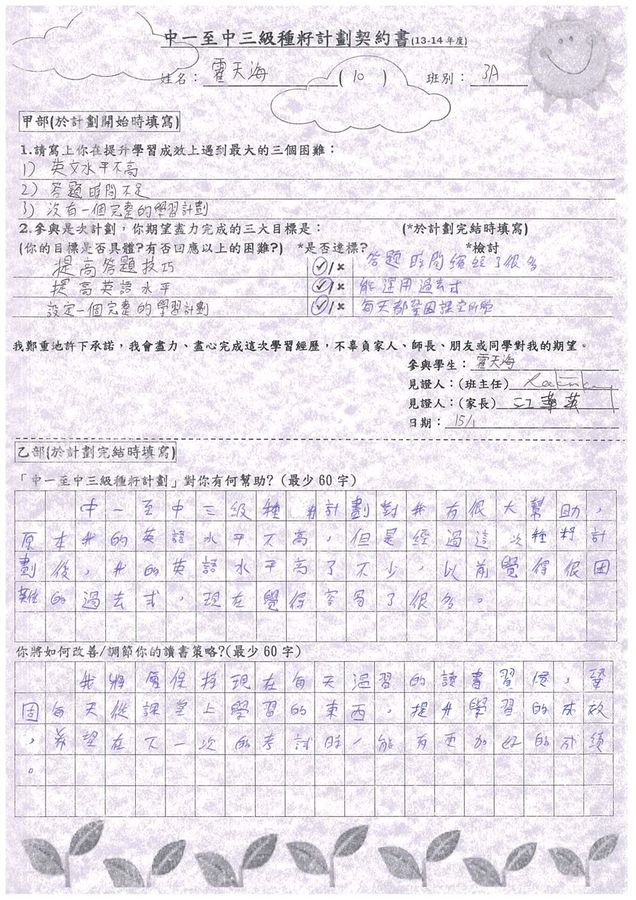 中一至中三級種籽計劃契約書(13-14年度)
姓名：霍天海 (10) 班別：3A
甲部(於計劃開始時填寫)
1.請寫上你在提升學習成效上遇到最大的三個困難：
1) 英文水平不高
2) 答題時間不足
3) 沒有一個完整的學習計劃
2.參與是次計劃，你期望盡力完成的三大目標是： (*於計劃完結時填寫)
(你的目標是否具體?有否回應以上的困難?) *是否達標? *檢討
提高答題技巧 ✓/× 答題時間縮短了很多
提高英語水平 ✓/× 能運用過去式
設定一個完整的學習計劃 ✓/× 每天都鞏固課堂所
我鄭重地許下承諾，我會盡力、盡心完成這次學習經歷，不辜負家人、師長、朋友或同學對我的期望。
參與學生：霍天海
見證人：(班主任)
見證人：(家長)
日期：15/1
乙部(於計劃完結時填寫)
「中一至中三級種籽計劃」對你有何幫助?(最少60字)
中一至中三級種 計劃對 有很大幫助，
原本 的英語水平不高，但是經過這次種籽計
劃後， 的英語水平高了不少，以前覺得很困
難的過去式，現在覺得容易了很多。
你將如何改善/調節你的讀書策略?(最少60字)
我將會保持現在每天溫習的讀書習慣，鞏
固每天從課堂上學習的東西，提升學習的成效
，希望在下一次的考試時，能有更加好的成績
。